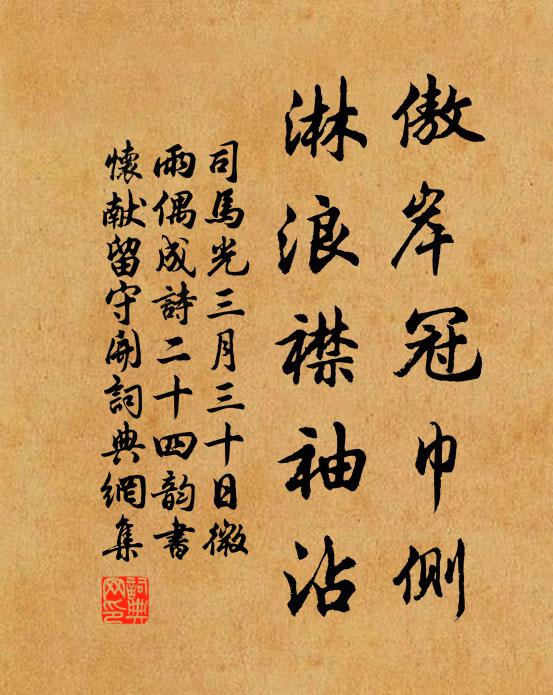 傲岸冠巾側
淋浪襟袖沾
司馬光三月三十日微
雨偶成詩二十四韵書
懷献留守開詞典網集
詞典网印